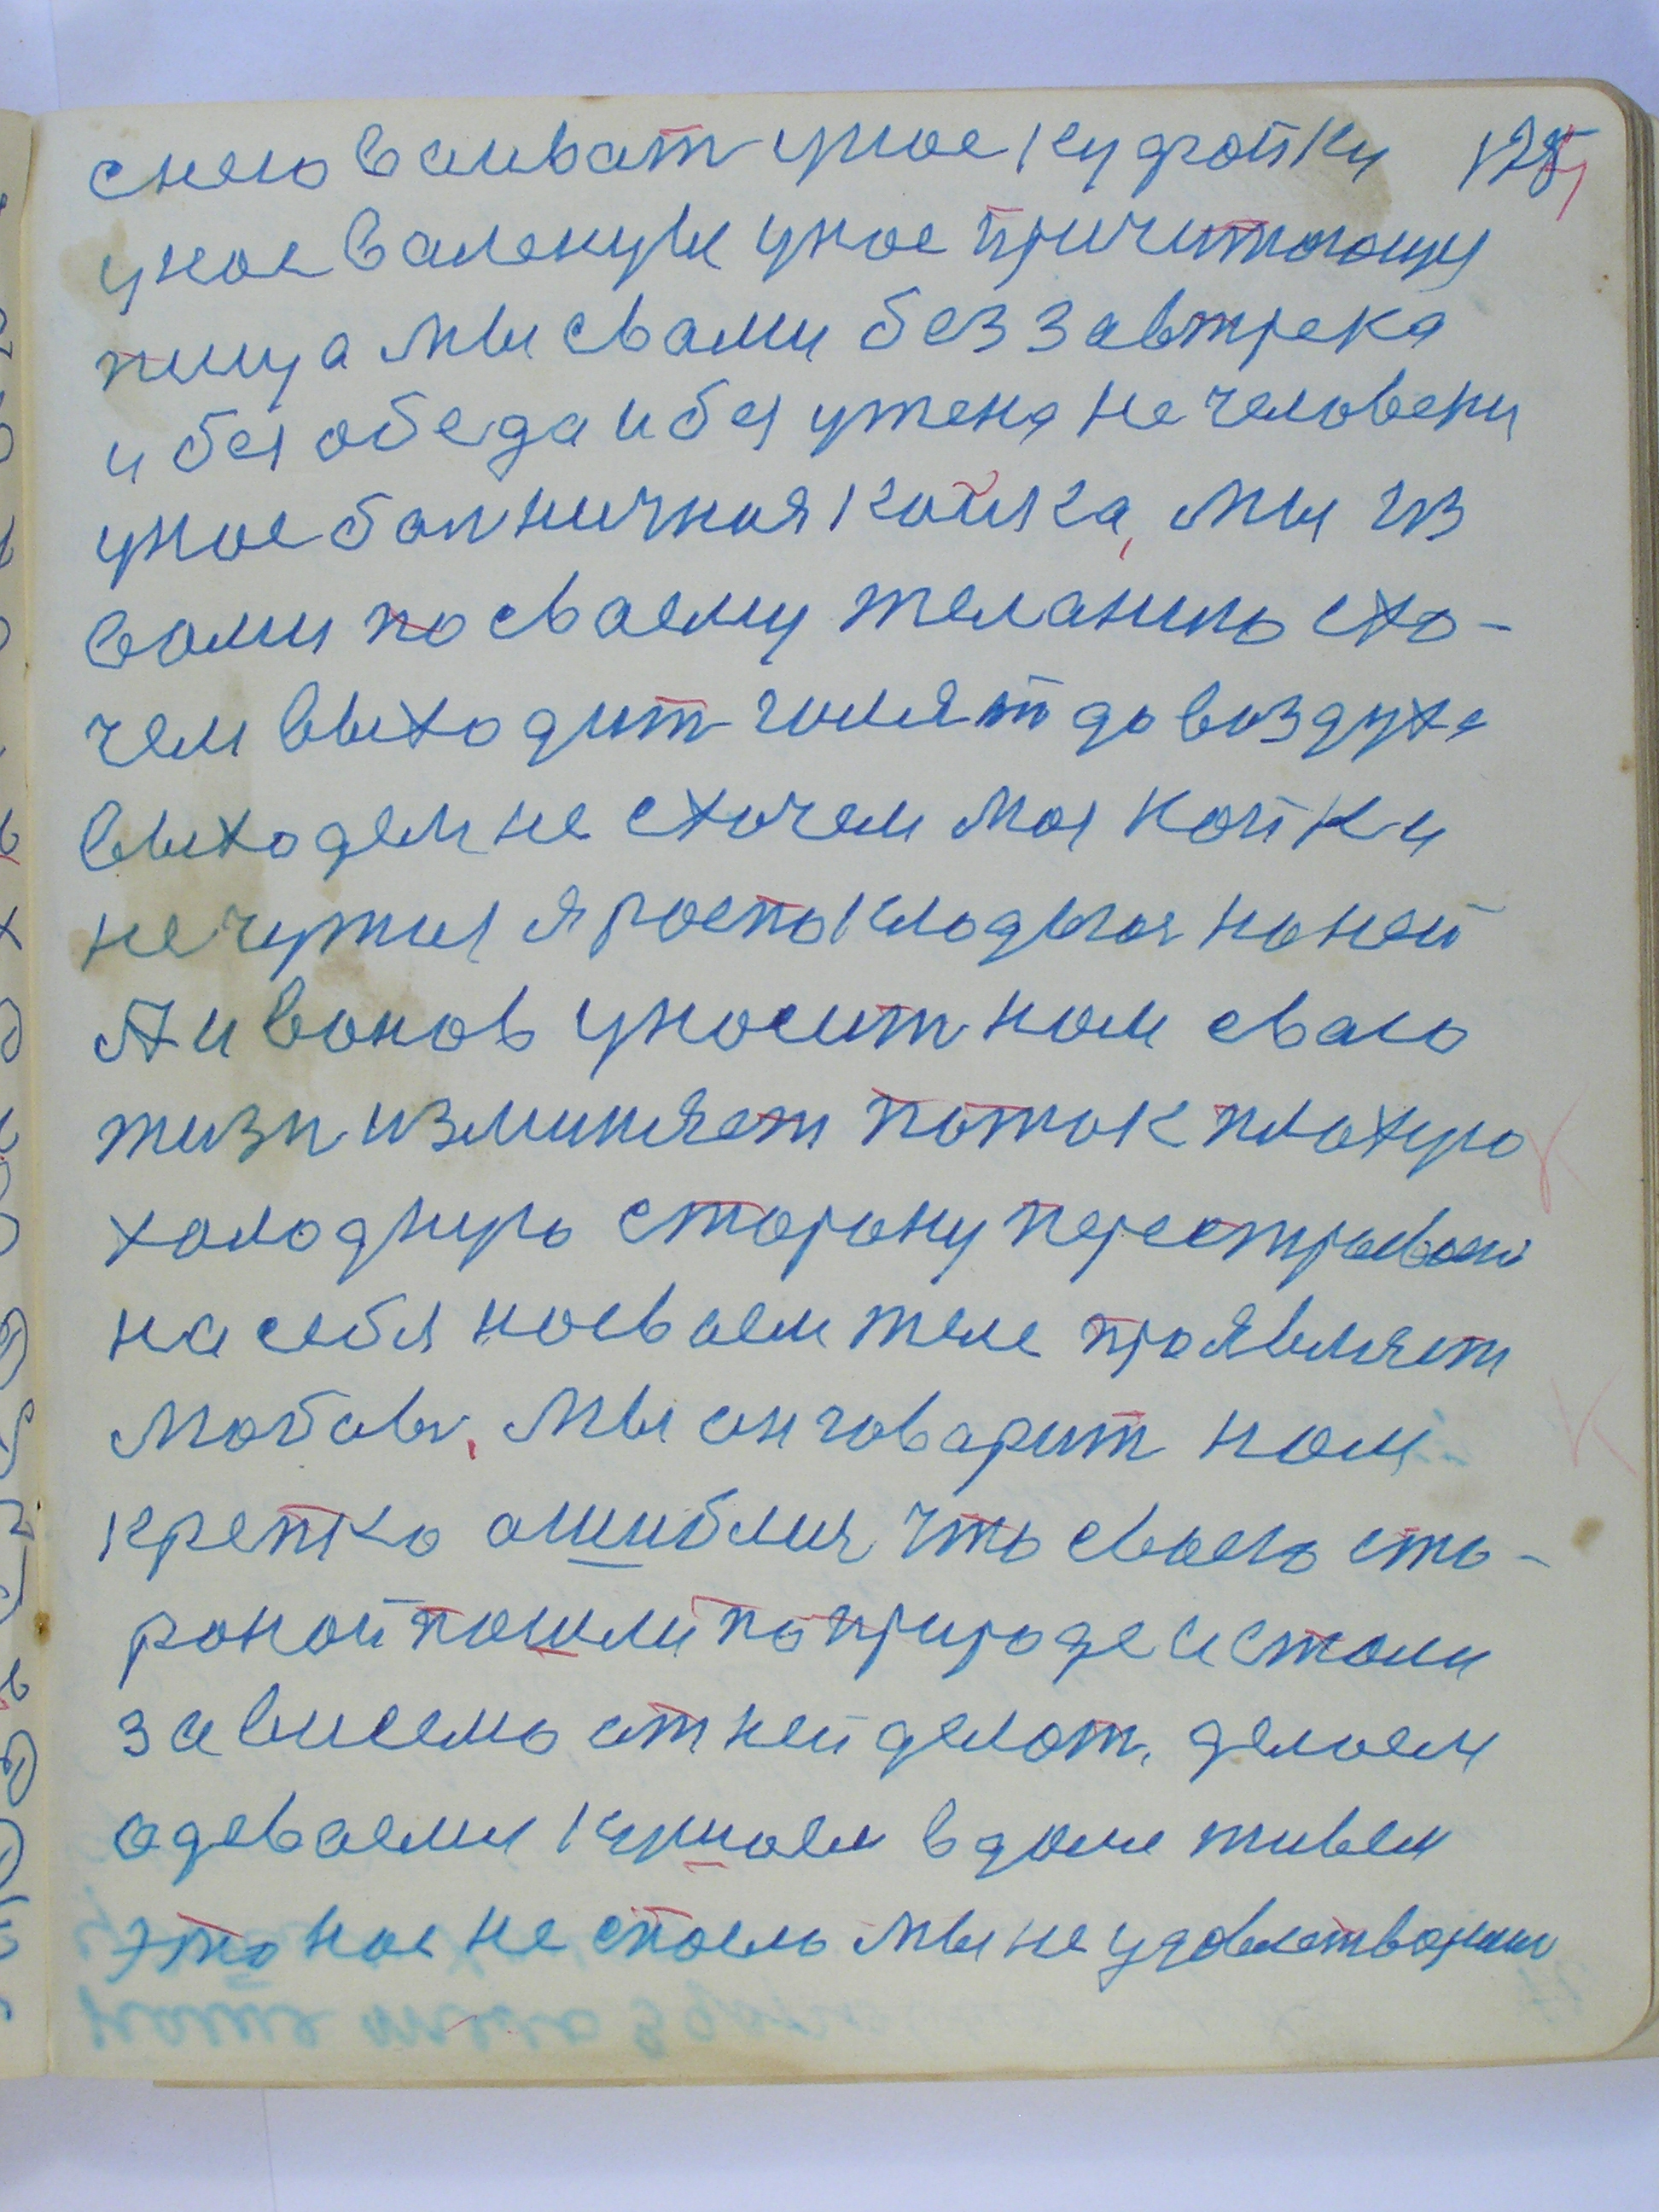 снего валиват унас кудройки 125
унас валенкии унас причитающи
пища мы свами без завтрека
и без обеда и без ужена не человеки
унас болничная койка, мы из
вами по сваему желанию схо-
чем выходит гулят до воздуха
выходем не схочем моя койки
не чужая я роспокладая на ней
А Иванов уносит нам сваю
жизн изминяет паток плахую
холодную сторону
на себя на сваем теле праявляет
любовь. Мы он говарит нам
крепко ошиблися что сваею сто-
раной пошли по природе и стали
зависемо от ней делат. делаем
одеваеми кушаем в доме живем
это нас не спасло мы не удовлетворили